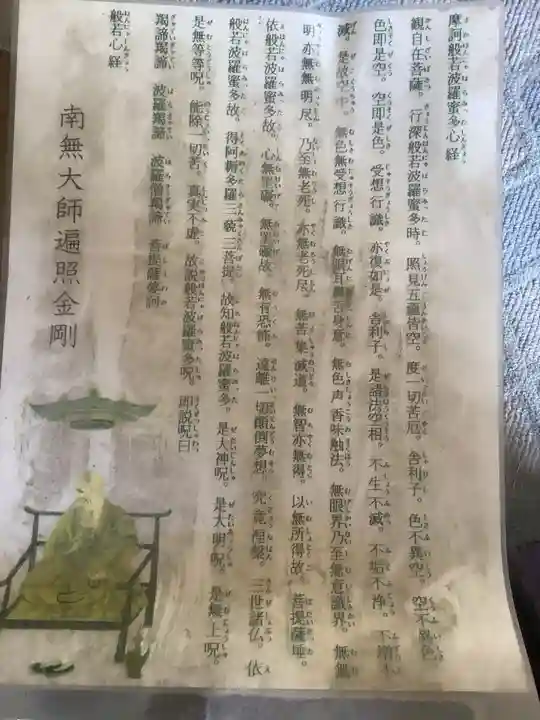 摩訶般若波羅蜜多心経
観自在菩薩。行深般若波羅蜜多時。照見五蘊皆空。度一切苦厄。舎利子。色不異空。空不異色
色即是空。空即是色。受想行識。亦復如是。舎利子。是諸法空相。不生不滅。不垢不浄。不増不
減。是故空中。無色無受想行識。無眼耳鼻舌身意。無色声香味触法。無眼界乃至無意識界。無無
明亦無無明尽。乃至無老死。亦無老死尽。無苦集滅道。無智亦無得。以無所得故。菩提薩埵。
依般若波羅蜜多故。心無罣礙。無罣礙故。無有恐怖。遠離一切顛倒夢想。究竟涅槃。三世諸仏。依
般若波羅蜜多故。得阿耨多羅三藐三菩提。故知般若波羅蜜多。是大神呪。是大明呪。是無上呪。
是無等等呪。能除一切苦。真実不虚。故説般若波羅蜜多呪。即説呪曰
羯諦羯諦 波羅羯諦 波羅僧羯諦 菩提薩婆訶
般若心経
南無大師遍照金剛